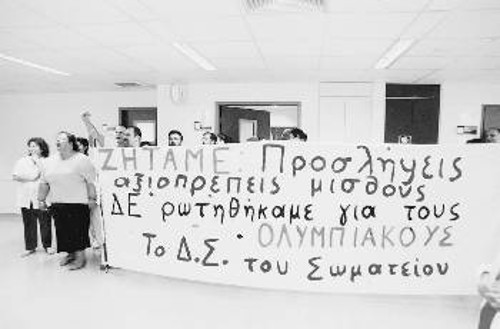 ΖΗΤΑΜΕ: Προσλήψεις
αξιοπρεπείς μισθούς
ΔΕ ρωτηθήκαμε για τους
ΟΛΥΜΠΙΑΚΟΥΣ
Το Δ.Σ. του Σωματείου